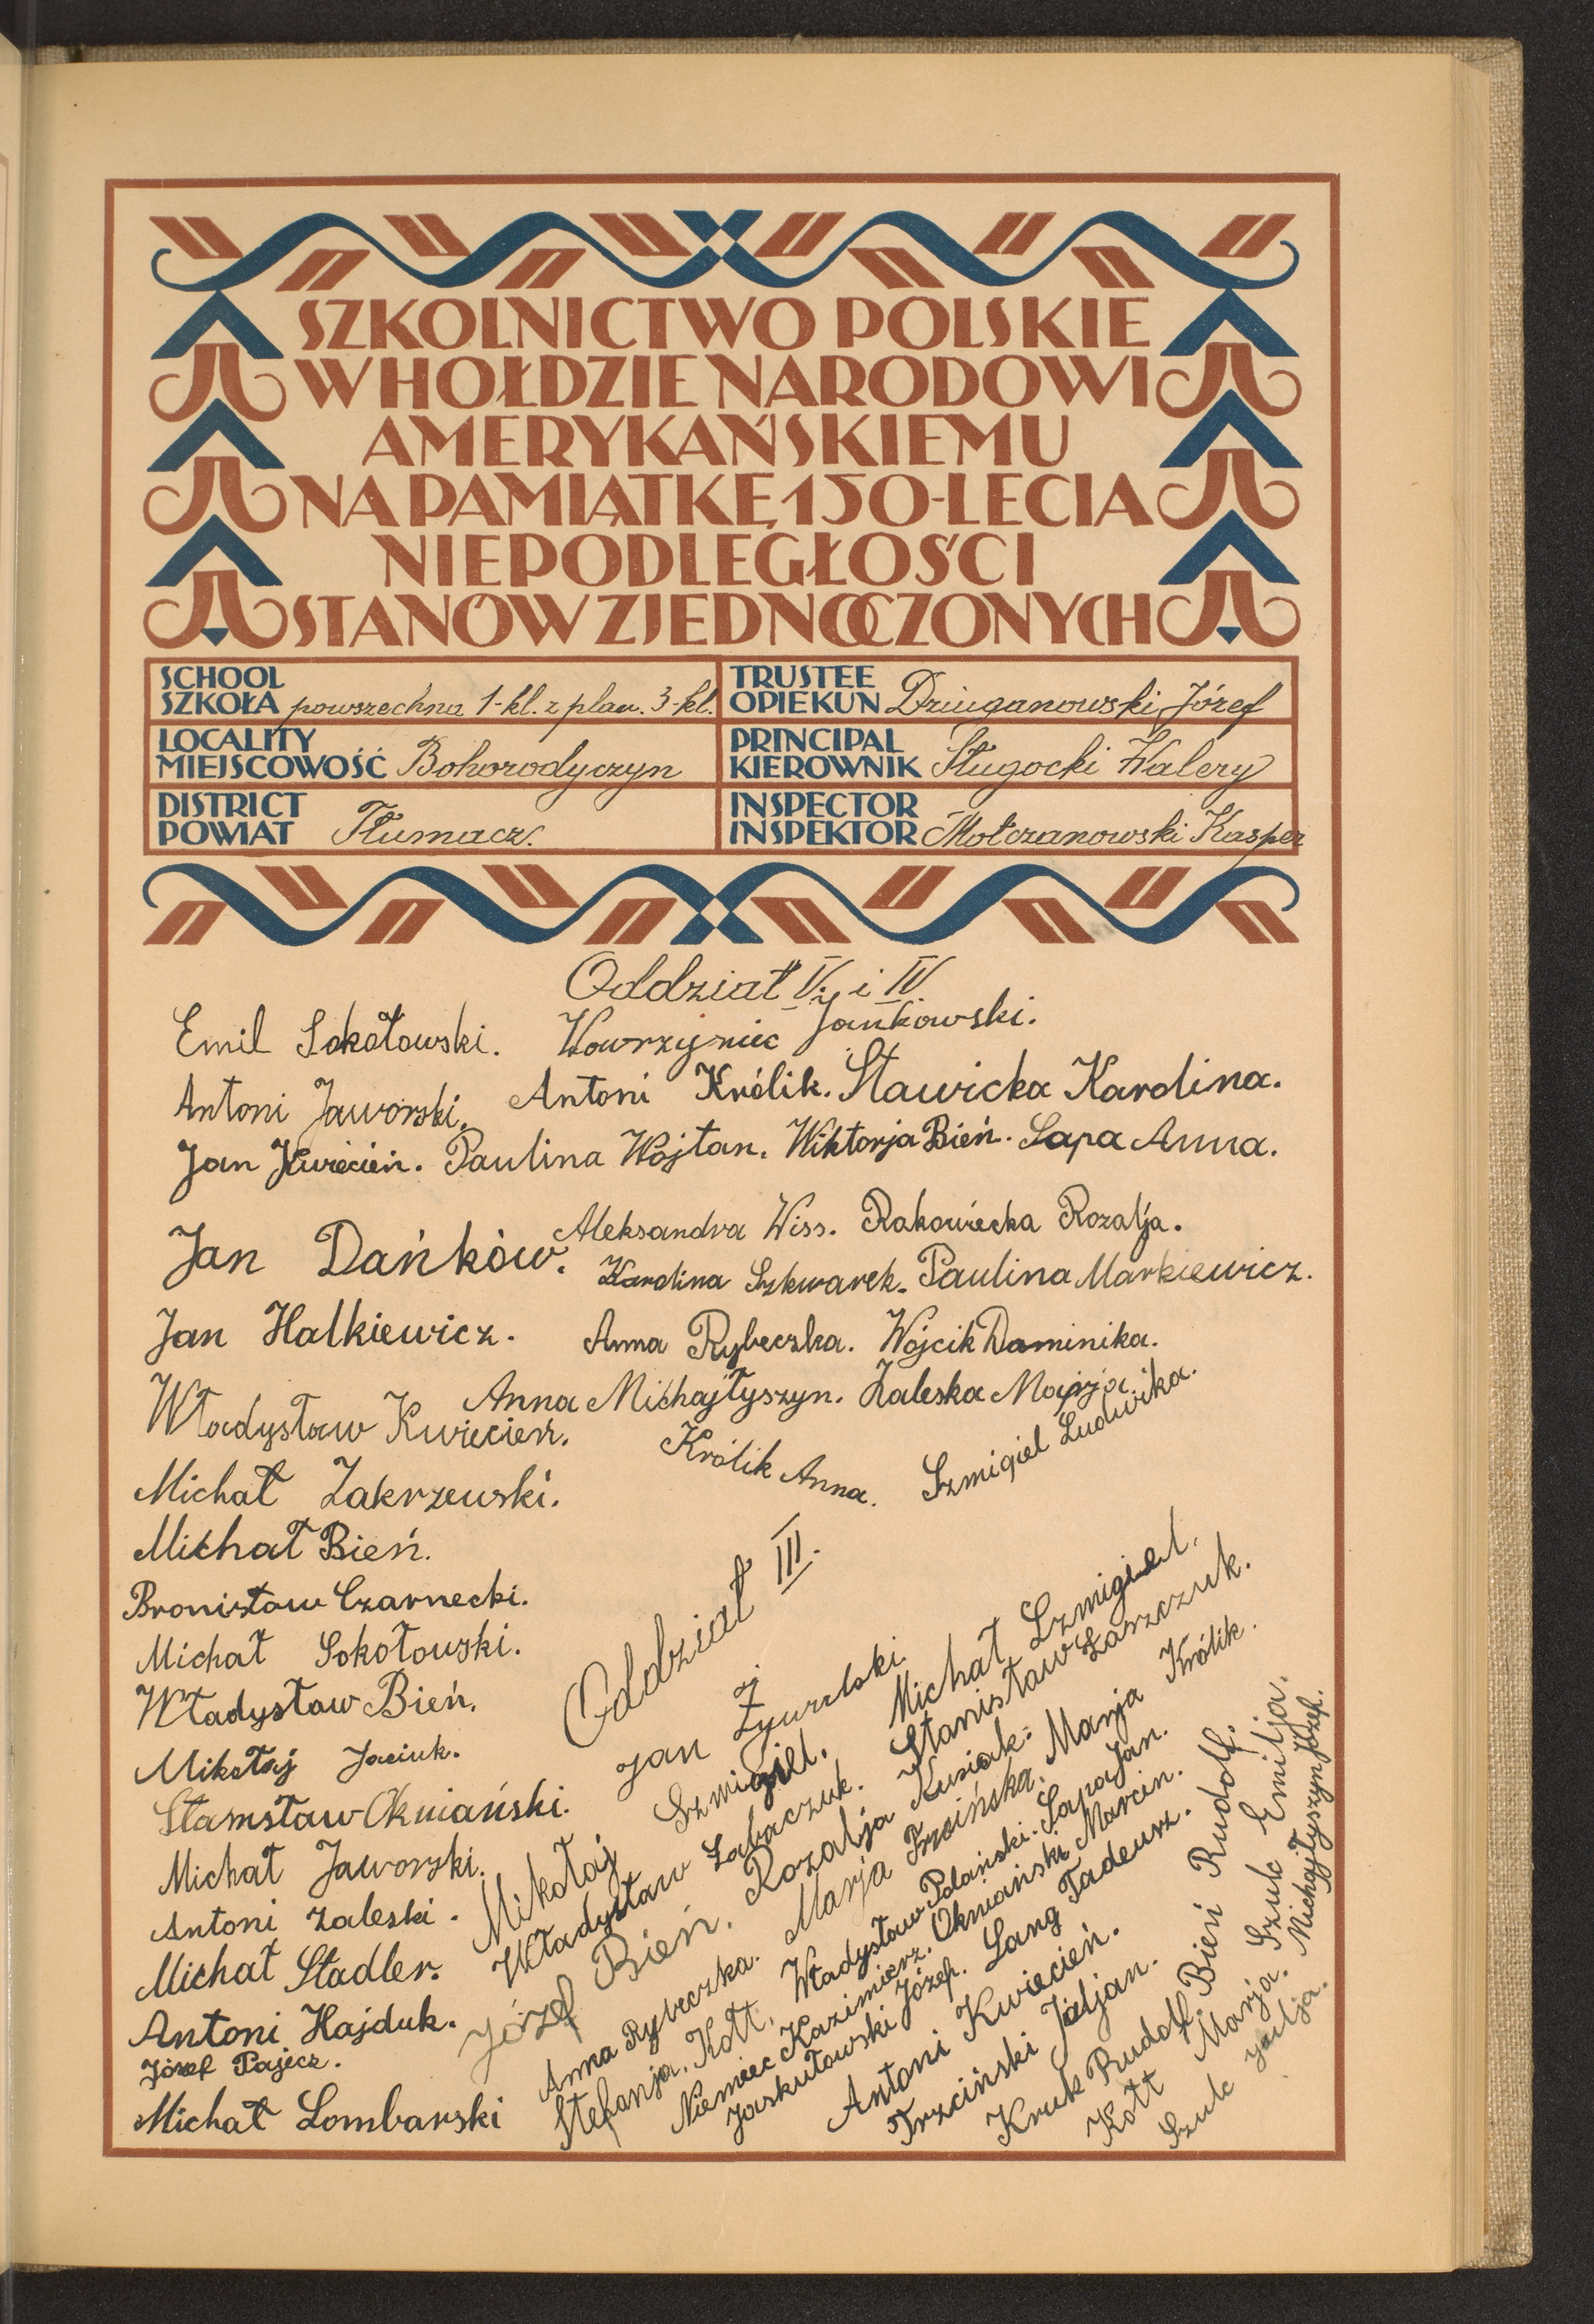 SZKOLNICTWO POLSKIE
W HOŁDZIE NARODOWI
AMERYKAŃSKIEMU
NA PAMIĄTKĘ 150-LECIA
NIEPODLEGŁOŚCI
STANÓW ZJEDNOCZONYCH
SCHOOL
SZKOŁA powszechna 1-kl. z plan. 3-kl.
TRUSTEE
OPIEKUN Dziuganowski Józef
LOCALITY
MIEJSCOWOŚĆ Bohorodyczyn
PRINCIPAL
KIEROWNIK Sługocki Walery
DISTRICT
POWIAT Tłumacz.
INSPECTOR
INSPEKTOR Mołczanowski Kasper
Oddział V. i IV.
Emil Sokołowski. Wawrzyniec Jankowski.
Antoni Jaworski. Antoni Królik. Sławicka Karolina.
Jan Kwiecień. Paulina Wójtan. Wiktorja Bień. Łapa Anna.
Jan Dańków. Aleksandra Wiss. Rakowiecka Rozalja.
Karolina Szkwarek. Paulina Markiewicz.
Jan Halkiewicz. Anna Rybeczka. Wójcik Dominika.
Władysław Kwiecień. Anna Michajłyszyn. Zaleska Marja.
Królik Anna. Szmigiel Ludwika.
Michał Zakrzewski.
Michał Bień.
Bronisław Czarnecki.
Michał Sokołowski.
Władysław Bień.
Mikołaj Jaciuk.
Stanisław Okniański.
Michał Jaworski.
Antoni Zaleski.
Michał Stadler.
Antoni Hajduk.
Józef Pajęcz.
Michał Lombarski
Oddział III.
Jan Żywulski
Mikołaj Szmigiel. Michał Szmigiel.
Władysław Łabaczuk. Stanisław Łaszczuk.
Józef Bień. Rozalja Kusiak.
Anna Rybeczka. Marja Trzcińska. Marja Królik.
Stefanja Kott. Władysław Polański. Łapa Jan.
Niemiec Kazimierz. Okniański Marcin.
Jaskułowski Józef. Lang Tadeusz.
Antoni Kwiecień.
Trzciński Juljan.
Kruk Rudolf. Bień Rudolf.
Kott Marja. Szulc Emilja.
Szulc Julja. Michajłyszyn Józef.